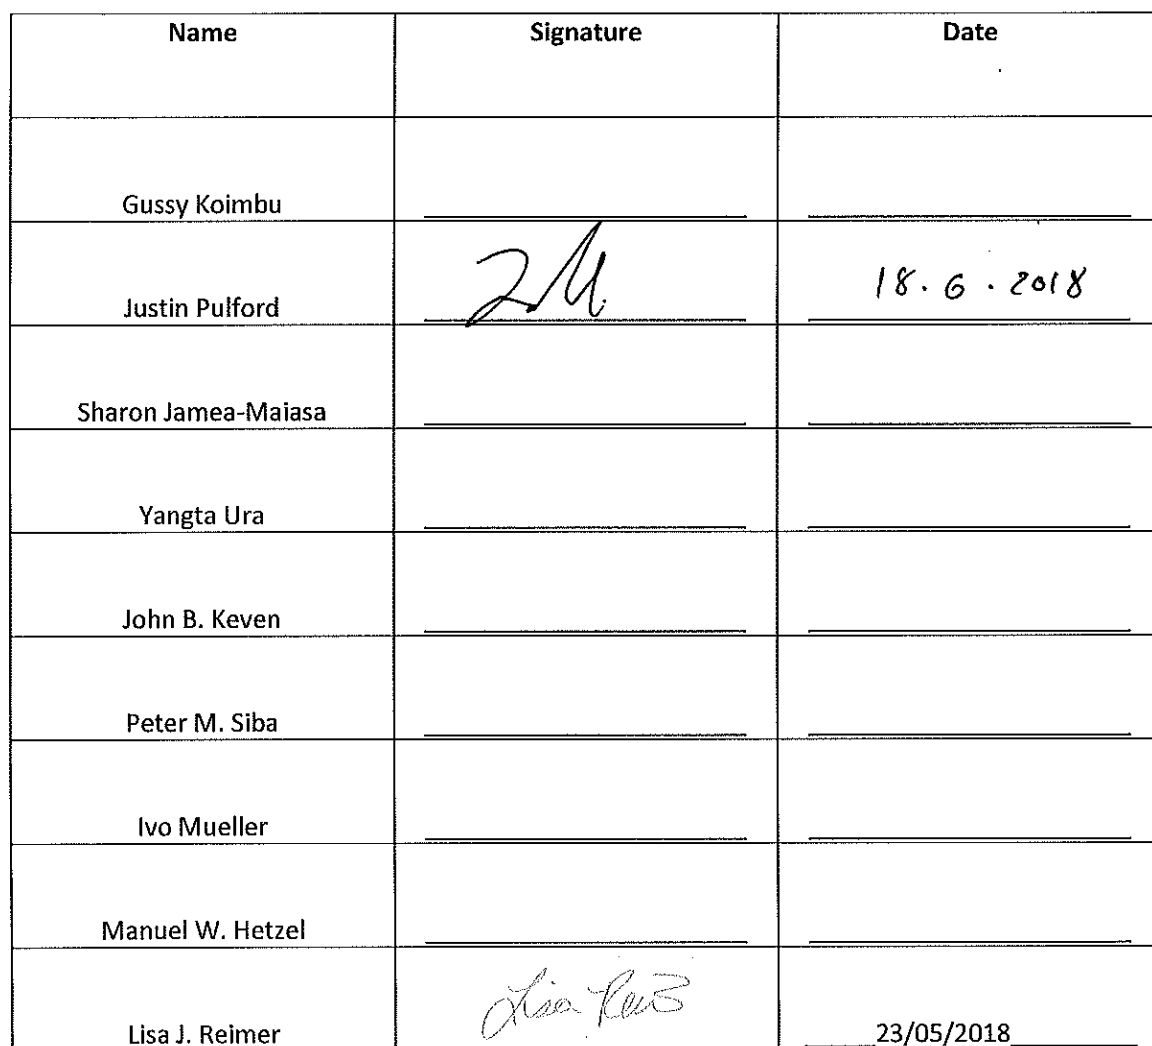 Name Signature Date
Gussy Koimbu
Justin Pulford 18.6.2018
Sharon Jamea-Maiasa
Yangta Ura
John B. Keven
Peter M. Siba
Ivo Mueller
Manuel W. Hetzel
Lisa J. Reimer 23/05/2018